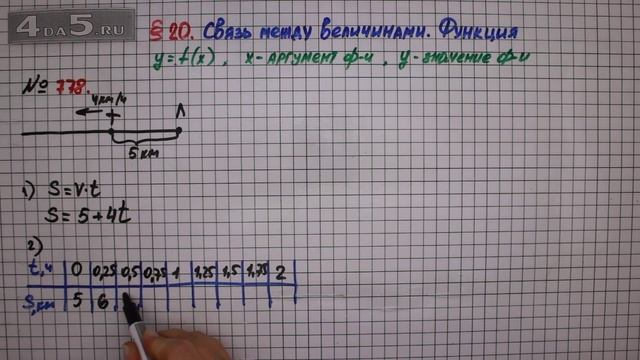 4DA5.RU
§ 20. Связь между величинами. Функция
y = f(x), x - аргумент ф-и, y - значение ф-и
№ 778.
4 км/ч
A
5 км
1) S = v·t
S = 5 + 4t
2)
t, ч 0 0,25 0,5 0,75 1 1,25 1,5 1,75 2
S, км 5 6